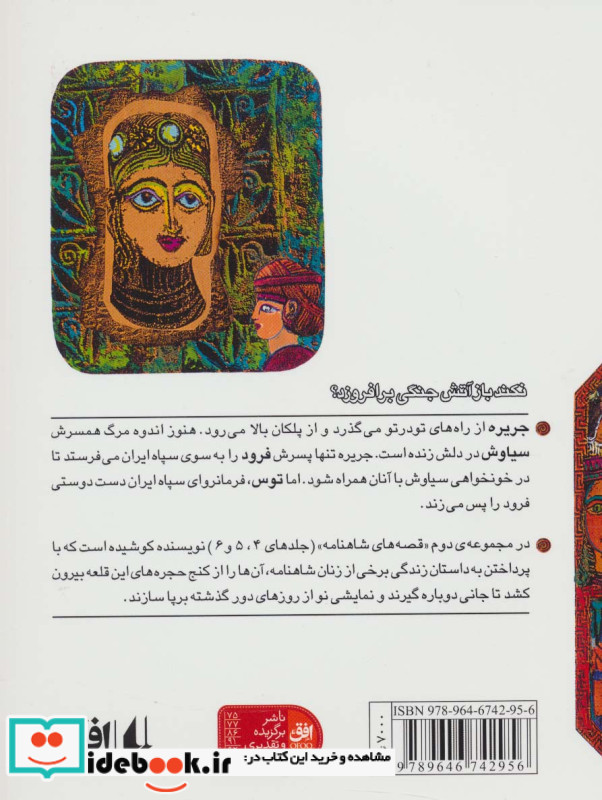 نکند باز آتش جنگی برافروزد؟
جریره از راه‌های تودرتو می‌گذرد و از پلکان بالا می‌رود. هنوز اندوه مرگ همسرش
سیاوش در دلش زنده است. جریره تنها پسرش فرود را به سوی سپاه ایران می‌فرستد تا
در خونخواهی سیاوش با آنان همراه شود. اما توس، فرمانروای سپاه ایران دست دوستی
فرود را پس می‌زند.
در مجموعه‌ی دوم «قصه‌های شاهنامه» (جلدهای ۴، ۵ و ۶) نویسنده کوشیده است که با
پرداختن به داستان زندگی برخی از زنان شاهنامه، آن‌ها را از کنج حجره‌های این قلعه بیرون
کشد تا جانی دوباره گیرند و نمایشی نو از روزهای دور گذشته برپا سازند.
ISBN 978-964-6742-95-6
9 789646 742956
ناشر
برگزیده
و تقدیری
۷۵
۷۷
۸۴
افق
OFOQ
مشاهده و خرید این کتاب در:
idebook.ir